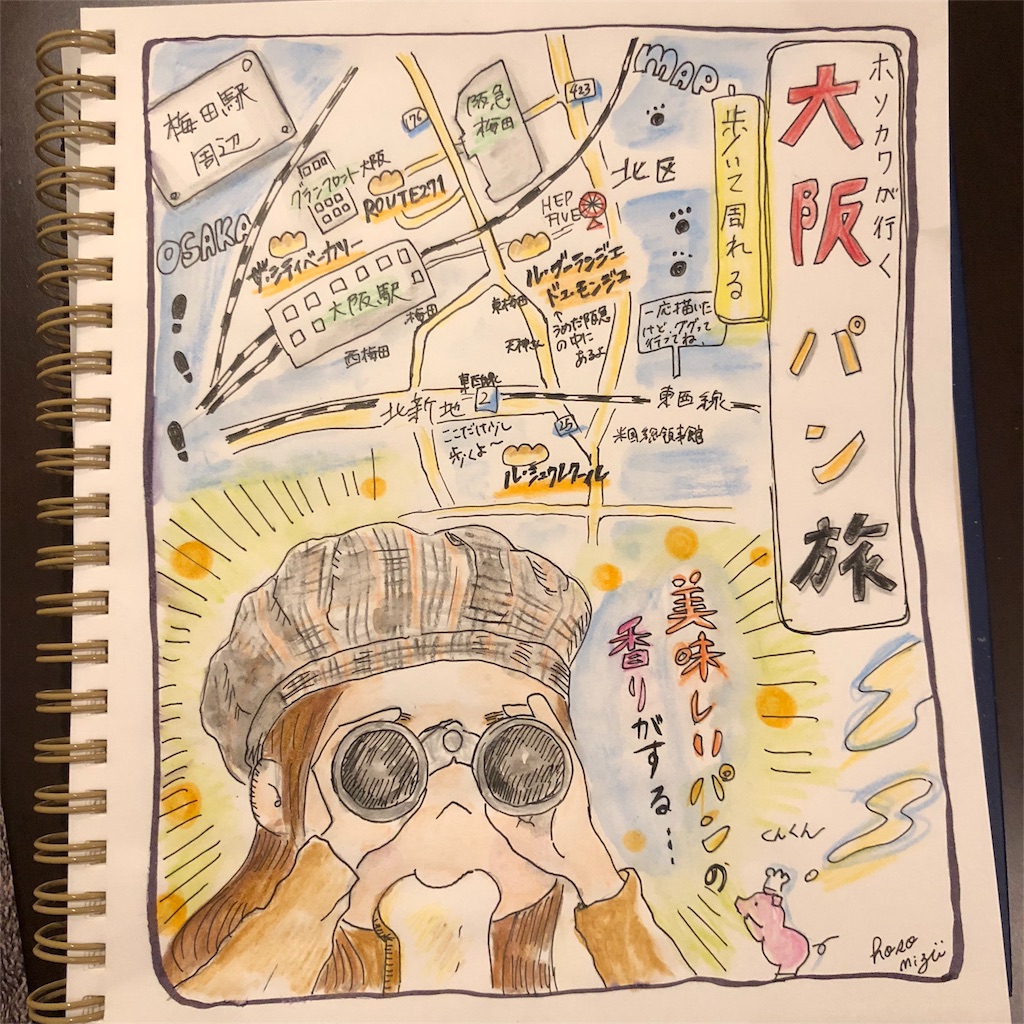 ホソカワが行く
大阪パン旅
歩いて周れる
MAP
梅田駅
周辺
OSAKA
176
阪急
梅田
423
北区
グランフロント大阪
ROUTE271
HEP
FIVE
ザ・シティベーカリー
ル・グーランジェ
ドュ・モンジュ
↑
うめだ阪急
の中に
あるよ
大阪駅
梅田
東梅田
西梅田
一応描いた
けど、ググって
行ってね、
東西線
2
北新地
東西線
ここだけ少し
歩くよ〜
25
米国総領事館
ル・シュクレクール
美味しいパンの
香りがする…
くんくん
hoso
mizii